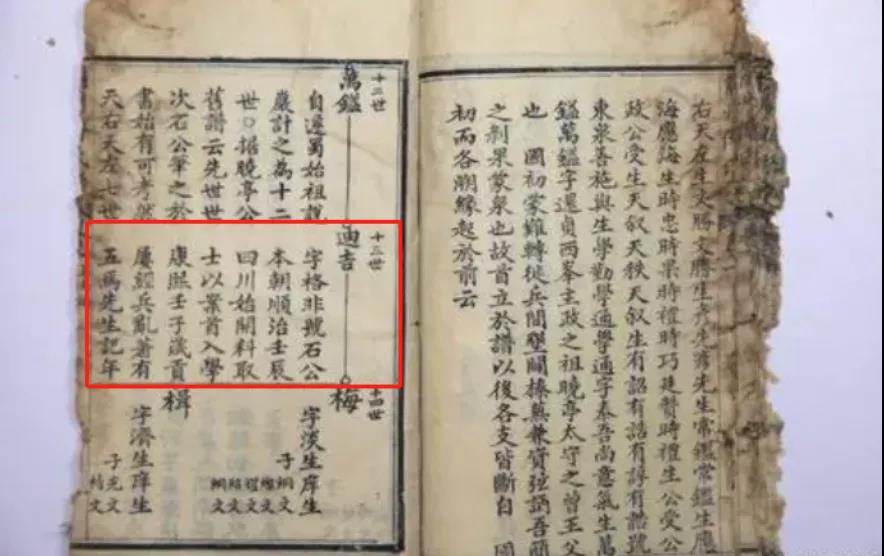 右天左生文勝文勝生彥先彥先生常鑑常鑑生應
海應海生時忠時榮時禮時巧廷贊時禮生公受公
政公受生天叙天秩天叙生有詔有誥有諄有諧號
東泉善施與生學勤學通學通字泰吾尚意氣生萬
鎰萬鎰字還貞西峯主政之祖曉亭太守之曾王父
也 國初蒙難轉徙兵間墾闢榛蕪兼資弦誦吾蘭
之剥果蒙泉也故首立於譜以後各支皆斷自 國
初而各溯緣起於前云
十二世
萬鎰
自遷蜀始祖說
嚴計之為十二
世〇据曉亭公
舊譜云先世世
次石公筆之於
書始有可考然
天右天左七世
十三世
迪吉
字格非號石公
本朝順治壬辰
四川始開科取
士以案首入學
康熙壬子歲貢
屢經兵亂著有
五馬先生記年
十四世
梅
字淡生庠生
子絅文
文
文
文
文
楫
字濟生庠生
子允文
文